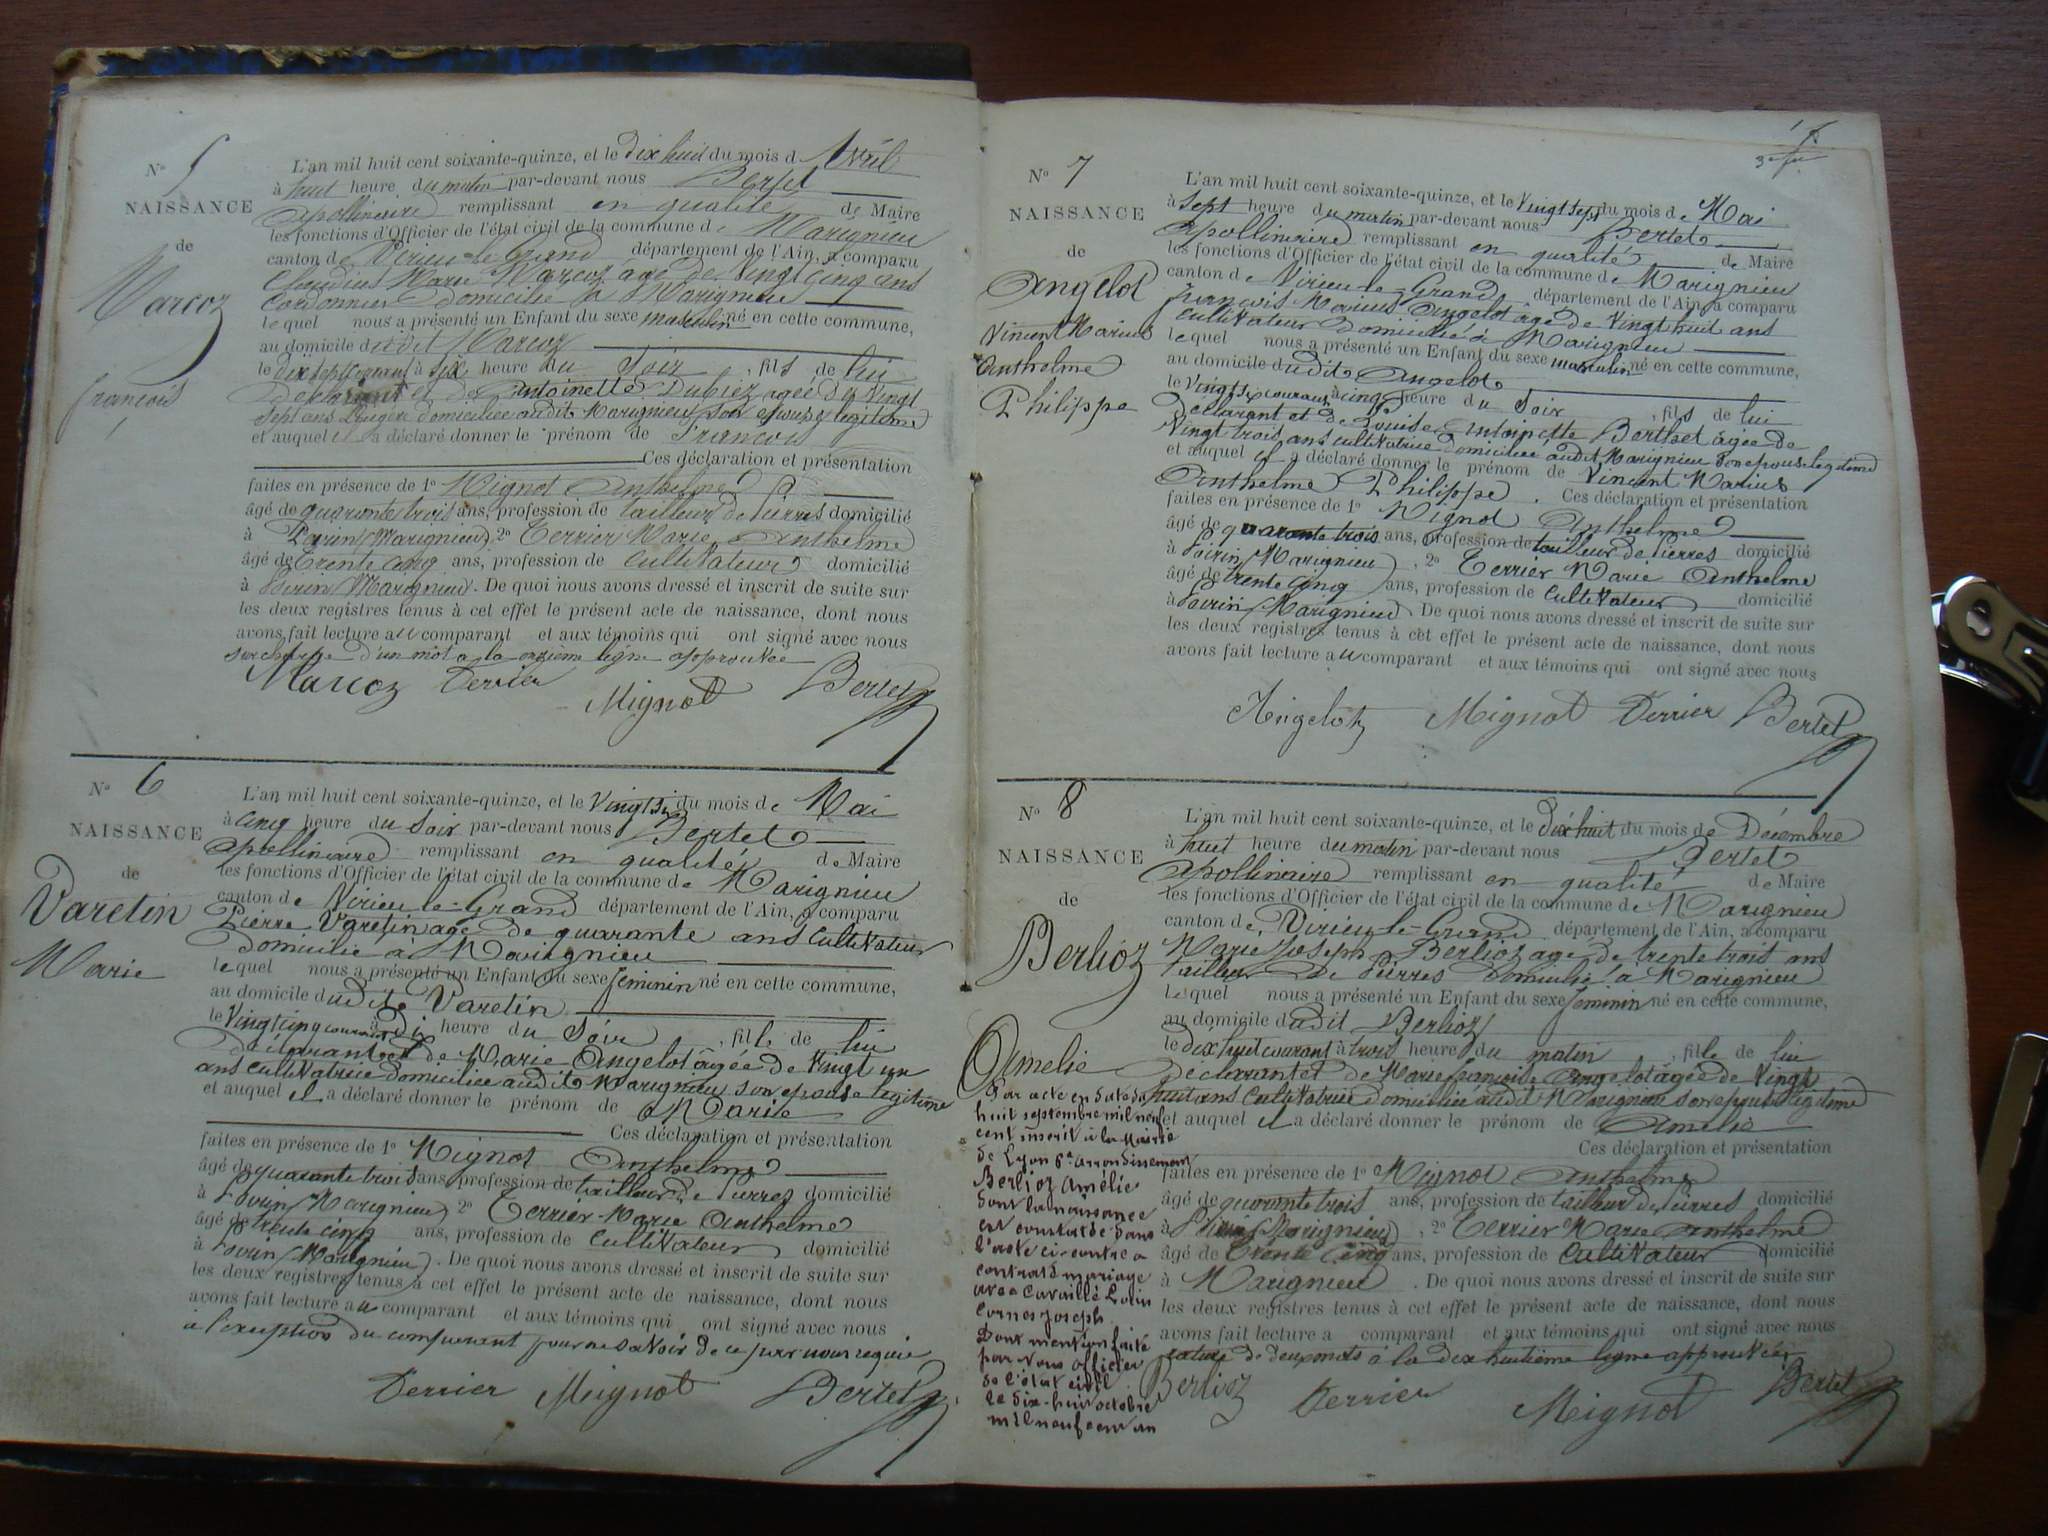 N° 5
NAISSANCE
de
Marcoz
françois
L'an mil huit cent soixante-quinze, et le dix huit du mois d'Avril
à huit heure du matin par-devant nous Bertet
apollinaire remplissant en qualité de Maire
les fonctions d'Officier de l'état civil de la commune de Marignieu
canton de Virieu-le-Grand département de l'Ain, a comparu
Claudius Marie Marcoz âgé de Vingt cinq ans
Cordonnier domicilié à Marignieu
lequel nous a présenté un Enfant du sexe masculin né en cette commune,
au domicile dudit Marcoz
le dix sept courant à six heure du Soir, fils de lui
déclarant et de antoinette Dubiez agée de Vingt
Sept ans domiciliée audit Marignieu son épouse légitime
et auquel il a déclaré donner le prénom de François
Ces déclaration et présentation
faites en présence de 1° Mignot Anthelme
âgé de quarante trois ans, profession de tailleur de Pierres domicilié
à Poirin (Marignieu) 2° Terrier Marie Anthelme
âgé de trente cinq ans, profession de cultivateur domicilié
à Poirin (Marignieu). De quoi nous avons dressé et inscrit de suite sur
les deux registres tenus à cet effet le présent acte de naissance, dont nous
avons fait lecture au comparant et aux témoins qui ont signé avec nous
surcharge d'un mot a la onzième ligne approuvée
Marcoz Terrier Mignot Bertet
N° 6
NAISSANCE
de
Varetin
Marie
L'an mil huit cent soixante-quinze, et le Vingt six du mois de Mai
à cinq heure du Soir par-devant nous Bertet
apollinaire remplissant en qualité de Maire
les fonctions d'Officier de l'état civil de la commune de Marignieu
canton de Virieu-le-Grand département de l'Ain, a comparu
Pierre Varetin agé de quarante ans Cultivateur
domicilié à Marignieu
lequel nous a présenté un Enfant du sexe feminin né en cette commune,
au domicile dudit Varetin
le Vingt cinq courant à dix heure du Soir, fille de lui
déclarant et de Marie Angelot âgée de Vingt un
ans cultivatrice domiciliée audit Marignieu son epouse légitime
et auquel il a déclaré donner le prénom de Marie
Ces déclaration et présentation
faites en présence de 1° Mignot Anthelme
âgé de quarante trois ans, profession de tailleur de Pierres domicilié
à Poirin (Marignieu) 2° Terrier Marie Anthelme
âgé de trente cinq ans, profession de cultivateur domicilié
à Poirin (Marignieu). De quoi nous avons dressé et inscrit de suite sur
les deux registres tenus à cet effet le présent acte de naissance, dont nous
avons fait lecture au comparant et aux témoins qui ont signé avec nous
à l'exception du comparant pour ne savoir de ce par nous requis
Terrier Mignot Bertet
N° 7
NAISSANCE
de
Angelot
Vincent Marius
Anthelme
Philippe
L'an mil huit cent soixante-quinze, et le Vingt Sept du mois de Mai
à Sept heure du matin par-devant nous Bertet
apollinaire remplissant en qualité de Maire
les fonctions d'Officier de l'état civil de la commune de Marignieu
canton de Virieu-le-Grand, département de l'Ain, a comparu
François Marius Angelot âgé de Vingt huit ans
Cultivateur domicilié à Marignieu
lequel nous a présenté un Enfant du sexe masculin né en cette commune,
au domicile dudit Angelot
le Vingt six courant à cinq heure du Soir, fils de lui
déclarant et de Louise Antoinette Berthet âgée de
Vingt trois ans cultivatrice domiciliée audit Marignieu son epouse légitime
et auquel il a déclaré donner le prénom de Vincent Marius
Anthelme Philippe. Ces déclaration et présentation
faites en présence de 1° Mignot Anthelme
âgé de quarante trois ans, profession de tailleur de Pierres domicilié
à Poirin (Marignieu), 2° Terrier Marie Anthelme
âgé de trente cinq ans, profession de cultivateur domicilié
à Poirin (Marignieu). De quoi nous avons dressé et inscrit de suite sur
les deux registres tenus à cet effet le présent acte de naissance, dont nous
avons fait lecture au comparant et aux témoins qui ont signé avec nous
Angelot Mignot Terrier Bertet
N° 8
NAISSANCE
de
Berlioz
Amelie
Par acte en date du
huit septembre mil neuf
cent inscrit à la Mairie
de Lyon 6e arrondissement
Berlioz Amélie
dont la naissance
est constatée dans
l'acte ci-contre a
contracté mariage
avec Cavaillé Louis
Joseph
Dont mention faite
par Nous officier
de l'état civil
le dix-huit octobre
mil neuf cent un
L'an mil huit cent soixante-quinze, et le dix huit du mois de Décembre
à huit heure du matin par-devant nous Bertet
apollinaire remplissant en qualité de Maire
les fonctions d'Officier de l'état civil de la commune de Marignieu
canton de Virieu-le-Grand département de l'Ain, a comparu
Marie Joseph Berlioz agé de trente trois ans
tailleur de Pierres domicilié à Marignieu
lequel nous a présenté un Enfant du sexe feminin né en cette commune,
au domicile dudit Berlioz
le dix huit courant à trois heure du matin, fille de lui
déclarant et de Marie françoise Angelot âgée de Vingt
huit ans Cultivatrice domiciliée audit Marignieu son epouse légitime
et auquel il a déclaré donner le prénom de Amelie
Ces déclaration et présentation
faites en présence de 1° Mignot Anthelme
âgé de quarante trois ans, profession de tailleur de Pierres domicilié
à Poirin (Marignieu), 2° Terrier Marie Anthelme
âgé de trente cinq ans, profession de Cultivateur domicilié
à Marignieu. De quoi nous avons dressé et inscrit de suite sur
les deux registres tenus à cet effet le présent acte de naissance, dont nous
avons fait lecture a comparant et aux témoins qui ont signé avec nous
rature de deux mots à la dix huitième ligne approuvée
Berlioz Terrier Mignot Bertet